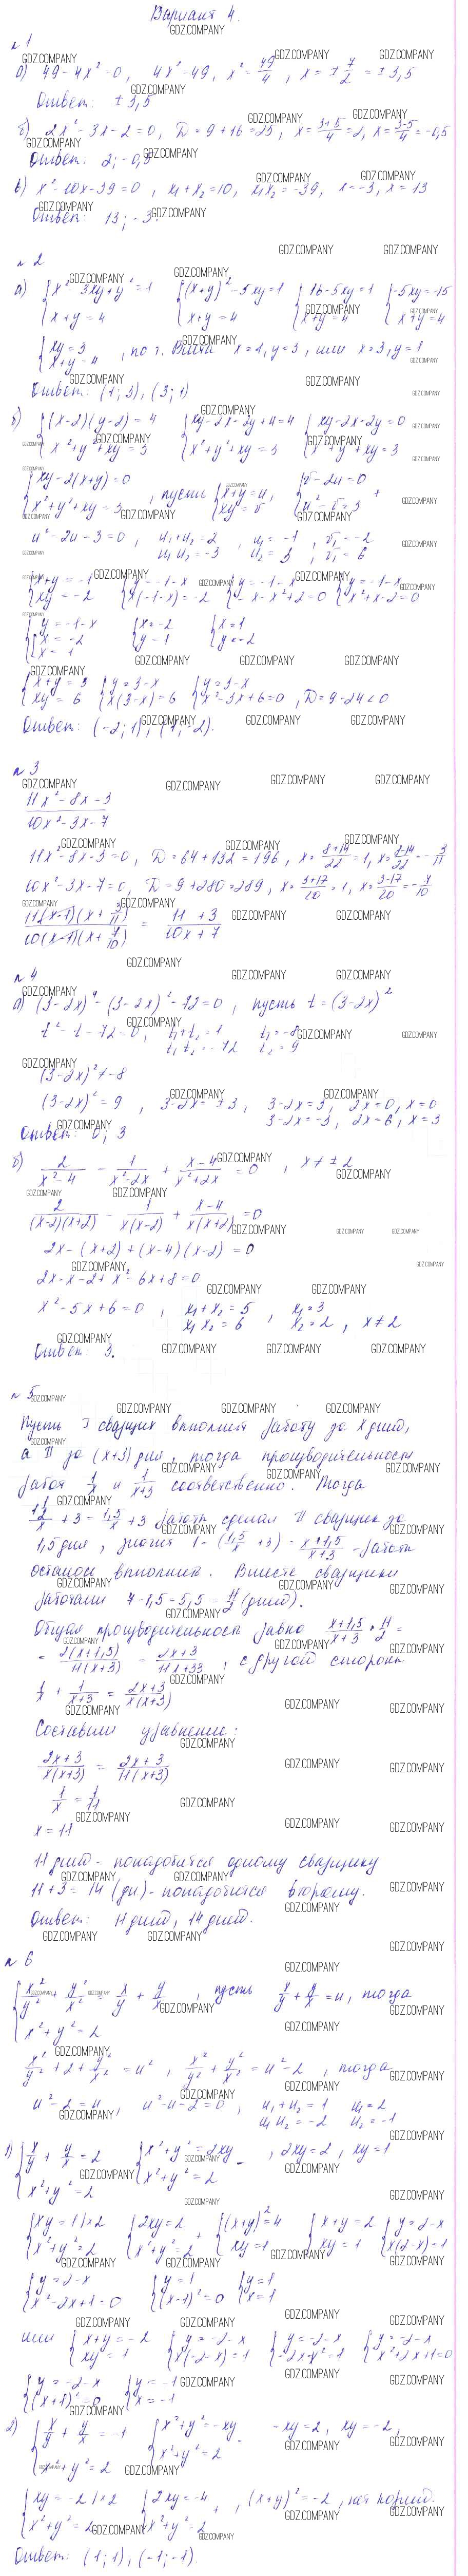 Вариант 4.
№ 1
а) 49 - 4x² = 0, 4x² = 49, x² = 49/4, x = ± 7/2 = ± 3,5
Ответ: ± 3,5
б) 2x² - 3x - 2 = 0, D = 9 + 16 = 25, x = (3+5)/4 = 2, x = (3-5)/4 = -0,5
Ответ: 2; -0,5
в) x² - 10x - 39 = 0, x₁ + x₂ = 10, x₁x₂ = -39, x = -3, x = 13
Ответ: 13; -3
№ 2
а) {x² - 3xy + y² = 1 {(x+y)² - 5xy = 1 {16 - 5xy = 1 {-5xy = -15
x + y = 4 x + y = 4 x + y = 4 x + y = 4
{xy = 3, по т. Виета x = 1, y = 3, или x = 3, y = 1
x + y = 4
Ответ: (1; 3), (3; 1)
б) {(x-2)(y-2) = 4 {xy - 2x - 2y + 4 = 4 {xy - 2x - 2y = 0
x² + y² + xy = 3 x² + y² + xy = 3 x² + y² + xy = 3
{xy - 2(x+y) = 0 , пусть {x + y = u, {v - 2u = 0 +
x² + y² + xy = 3 xy = v u² - v = 3
u² - 2u - 3 = 0, u₁ + u₂ = 2 , u₁ = -1 , v₁ = -2
u₁ u₂ = -3 u₂ = 3 v₁ = 6
{x + y = -1 {y = -1 - x {y = -1 - x {y = -1 - x
xy = -2 x(-1-x) = -2 -x - x² + 2 = 0 x² + x - 2 = 0
{y = -1 - x {x = -2 {x = 1
x = -2 y = 1 y = -2
x = 1
{x + y = 3 {y = 3 - x {y = 3 - x
xy = 6 x(3-x) = 6 x² - 3x + 6 = 0, D = 9 - 24 < 0
Ответ: (-2; 1), (1; -2).
№ 3
11x² - 8x - 3
10x² - 3x - 7
11x² - 8x - 3 = 0, D = 64 + 132 = 196, x = (8+14)/22 = 1, x = (8-14)/22 = -3/11
10x² - 3x - 7 = 0, D = 9 + 280 = 289, x = (3+17)/20 = 1, x = (3-17)/20 = -7/10
11(x-1)(x + 3/11) = 11 + 3
10(x-1)(x + 7/10) 10x + 7
№ 4
а) (3-2x)⁴ - (3-2x)² - 72 = 0, пусть t = (3-2x)²
t² - t - 72 = 0, t₁ + t₂ = 1 t₁ = -8
t₁ t₂ = -72 t₂ = 9
(3-2x)² ≠ -8
(3-2x)² = 9 , 3-2x = ±3, 3-2x = 3, 2x = 0, x = 0
3-2x = -3, 2x = 6, x = 3
Ответ: 0; 3
б) 2/(x²-4) - 1/(x²-2x) + (x-4)/(x²+2x) = 0 , x ≠ ± 2
2/((x-2)(x+2)) - 1/(x(x-2)) + (x-4)/(x(x+2)) = 0
2x - (x+2) + (x-4)(x-2) = 0
2x - x - 2 + x² - 6x + 8 = 0
x² - 5x + 6 = 0 , x₁ + x₂ = 5 , x₁ = 3
x₁ x₂ = 6 x₂ = 2 , x ≠ 2
Ответ: 3.
№ 5
Пусть I сварщик выполнит работу за x дней,
а II за (x+3) дня, тогда производительности
работ 1/x и 1/(x+3) соответственно. Тогда
1,5 дня, значит
осталось выполнить. Вместе сварщики
работали 7 - 1,5 = 5,5 = 11/2 (дней).
Общая производительность равна (x+1,5)/(x+3) : 11/2 =
= 2(x+1,5)/11(x+3) = (2x+3)/(11x+33) , с другой стороны
1/x + 1/(x+3) = (2x+3)/(x(x+3))
Составим уравнение:
(2x+3)/(x(x+3)) = (2x+3)/(11(x+3))
1/x = 1/11
x = 11
11 дней - понадобится одному сварщику
11 + 3 = 14 (дн) - понадобится второму.
Ответ: 11 дней, 14 дней.
№ 6
{x²/y² + y²/x² = x/y + y/x , пусть x/y + y/x = u, тогда
x² + y² = 2
x²/y² + 2 + y²/x² = u² , x²/y² + y²/x² = u² - 2 , тогда
u² - 2 = u, u² - u - 2 = 0, u₁ + u₂ = 1 u₁ = 2
u₁ u₂ = -2 u₂ = -1
1) {x/y + y/x = 2 {x² + y² = 2xy - , 2xy = 2, xy = 1
x² + y² = 2 x² + y² = 2
{xy = 1 |×2 {2xy = 2 + {(x+y)² = 4 {x + y = 2 {y = 2 - x
x² + y² = 2 x² + y² = 2 xy = 1 xy = 1 x(2-x) = 1
{y = 2 - x {y = 1 {y = 1
x² - 2x + 1 = 0 (x-1)² = 0 x = 1
или {x + y = -2 {y = -2 - x {y = -2 - x {y = -2 - x
xy = 1 x(-2-x) = 1 -2x - x² = 1 x² + 2x + 1 = 0
{y = -2 - x {y = -1
(x+1)² = 0 x = -1
2) {x/y + y/x = -1 {x² + y² = -xy - -xy = 2, xy = -2,
x² + y² = 2 x² + y² = 2
{xy = -2 |×2 {2xy = -4 + , (x+y)² = -2, нет корней.
x² + y² = 2 x² + y² = 2
Ответ: (1; 1), (-1; -1).
GDZ.COMPANY